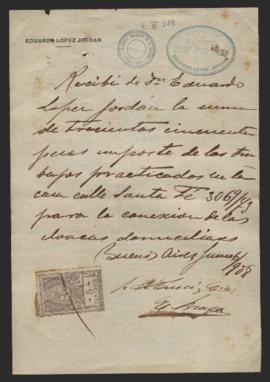 EDUARDO LOPEZ JORDAN
Recibí de Dn Eduardo
Lopez Jordan la suma
de trescientos cincuenta
pesos importe de los tra
bajos practicados en la
casa calle Santa Fé 3069/73
para la conexion de las
cloacas domiciliarias
Buenos Aires Junio
908